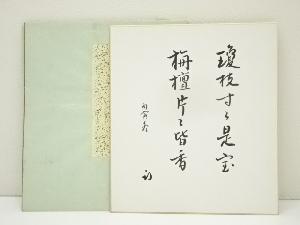 瓊枝寸々是宝
栴檀片々皆香